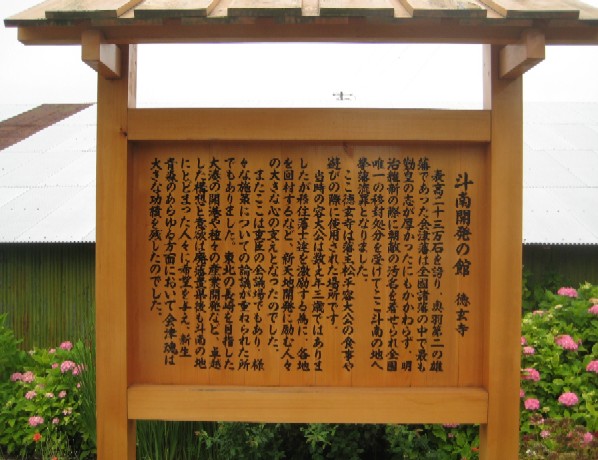 斗南開発の館 徳玄寺
最高二十三万石を誇り、奥羽第二の雄
藩であった会津藩は全国諸藩の中で最も
勤皇の志が厚かったにもかかわらず、明
治維新の際に朝敵の汚名を着せられ全国
唯一の移封処分を受けてここ斗南の地へ
挙藩流罪となりました。
ここ徳玄寺は藩主松平容大公の食事や
遊びの際に使用された場所です。
当時の容大公は数え年三歳ではありま
したが移住藩士達を激励する為に、各地
を回村するなど、新天地開発に励む人々
の大きな心の支えとなったのでした。
またここは重臣の会議場でもあり、様
々な施策についての論議が重ねられた所
でもありました。東北の長崎を目指した
大湊の開港や種々の産業開発など、卓越
した構想と意欲は廃藩置県後も斗南の地
にとどまった人々に希望を与え、新生
青森のあらゆる方面において会津魂は
大きな功績を残したのでした。